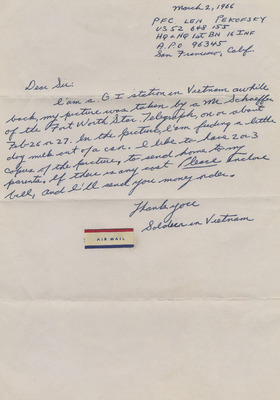 March 2, 1966
PFC LEN PEKOFSKY
US 52 648 155
HQ & HQ 1st BN 16 INF
A.P.O 96345
San Francisco, Calif.
Dear Sir:
I'am a G I station in Vietnam awhile
back, my picture was taken by a Mr. Schaeffer
of the Fort Worth Star Telegraph, on or about
Feb 26 or 27. In the picture, I'am feeding a little
dog milk out of a can. I like to have 2 or 3
copies of the picture, to send home to my
parents. If there is any cost Please Enclose
bill, and I'll send you money order.
Thank you
Soldier in Vietnam
AIR MAIL